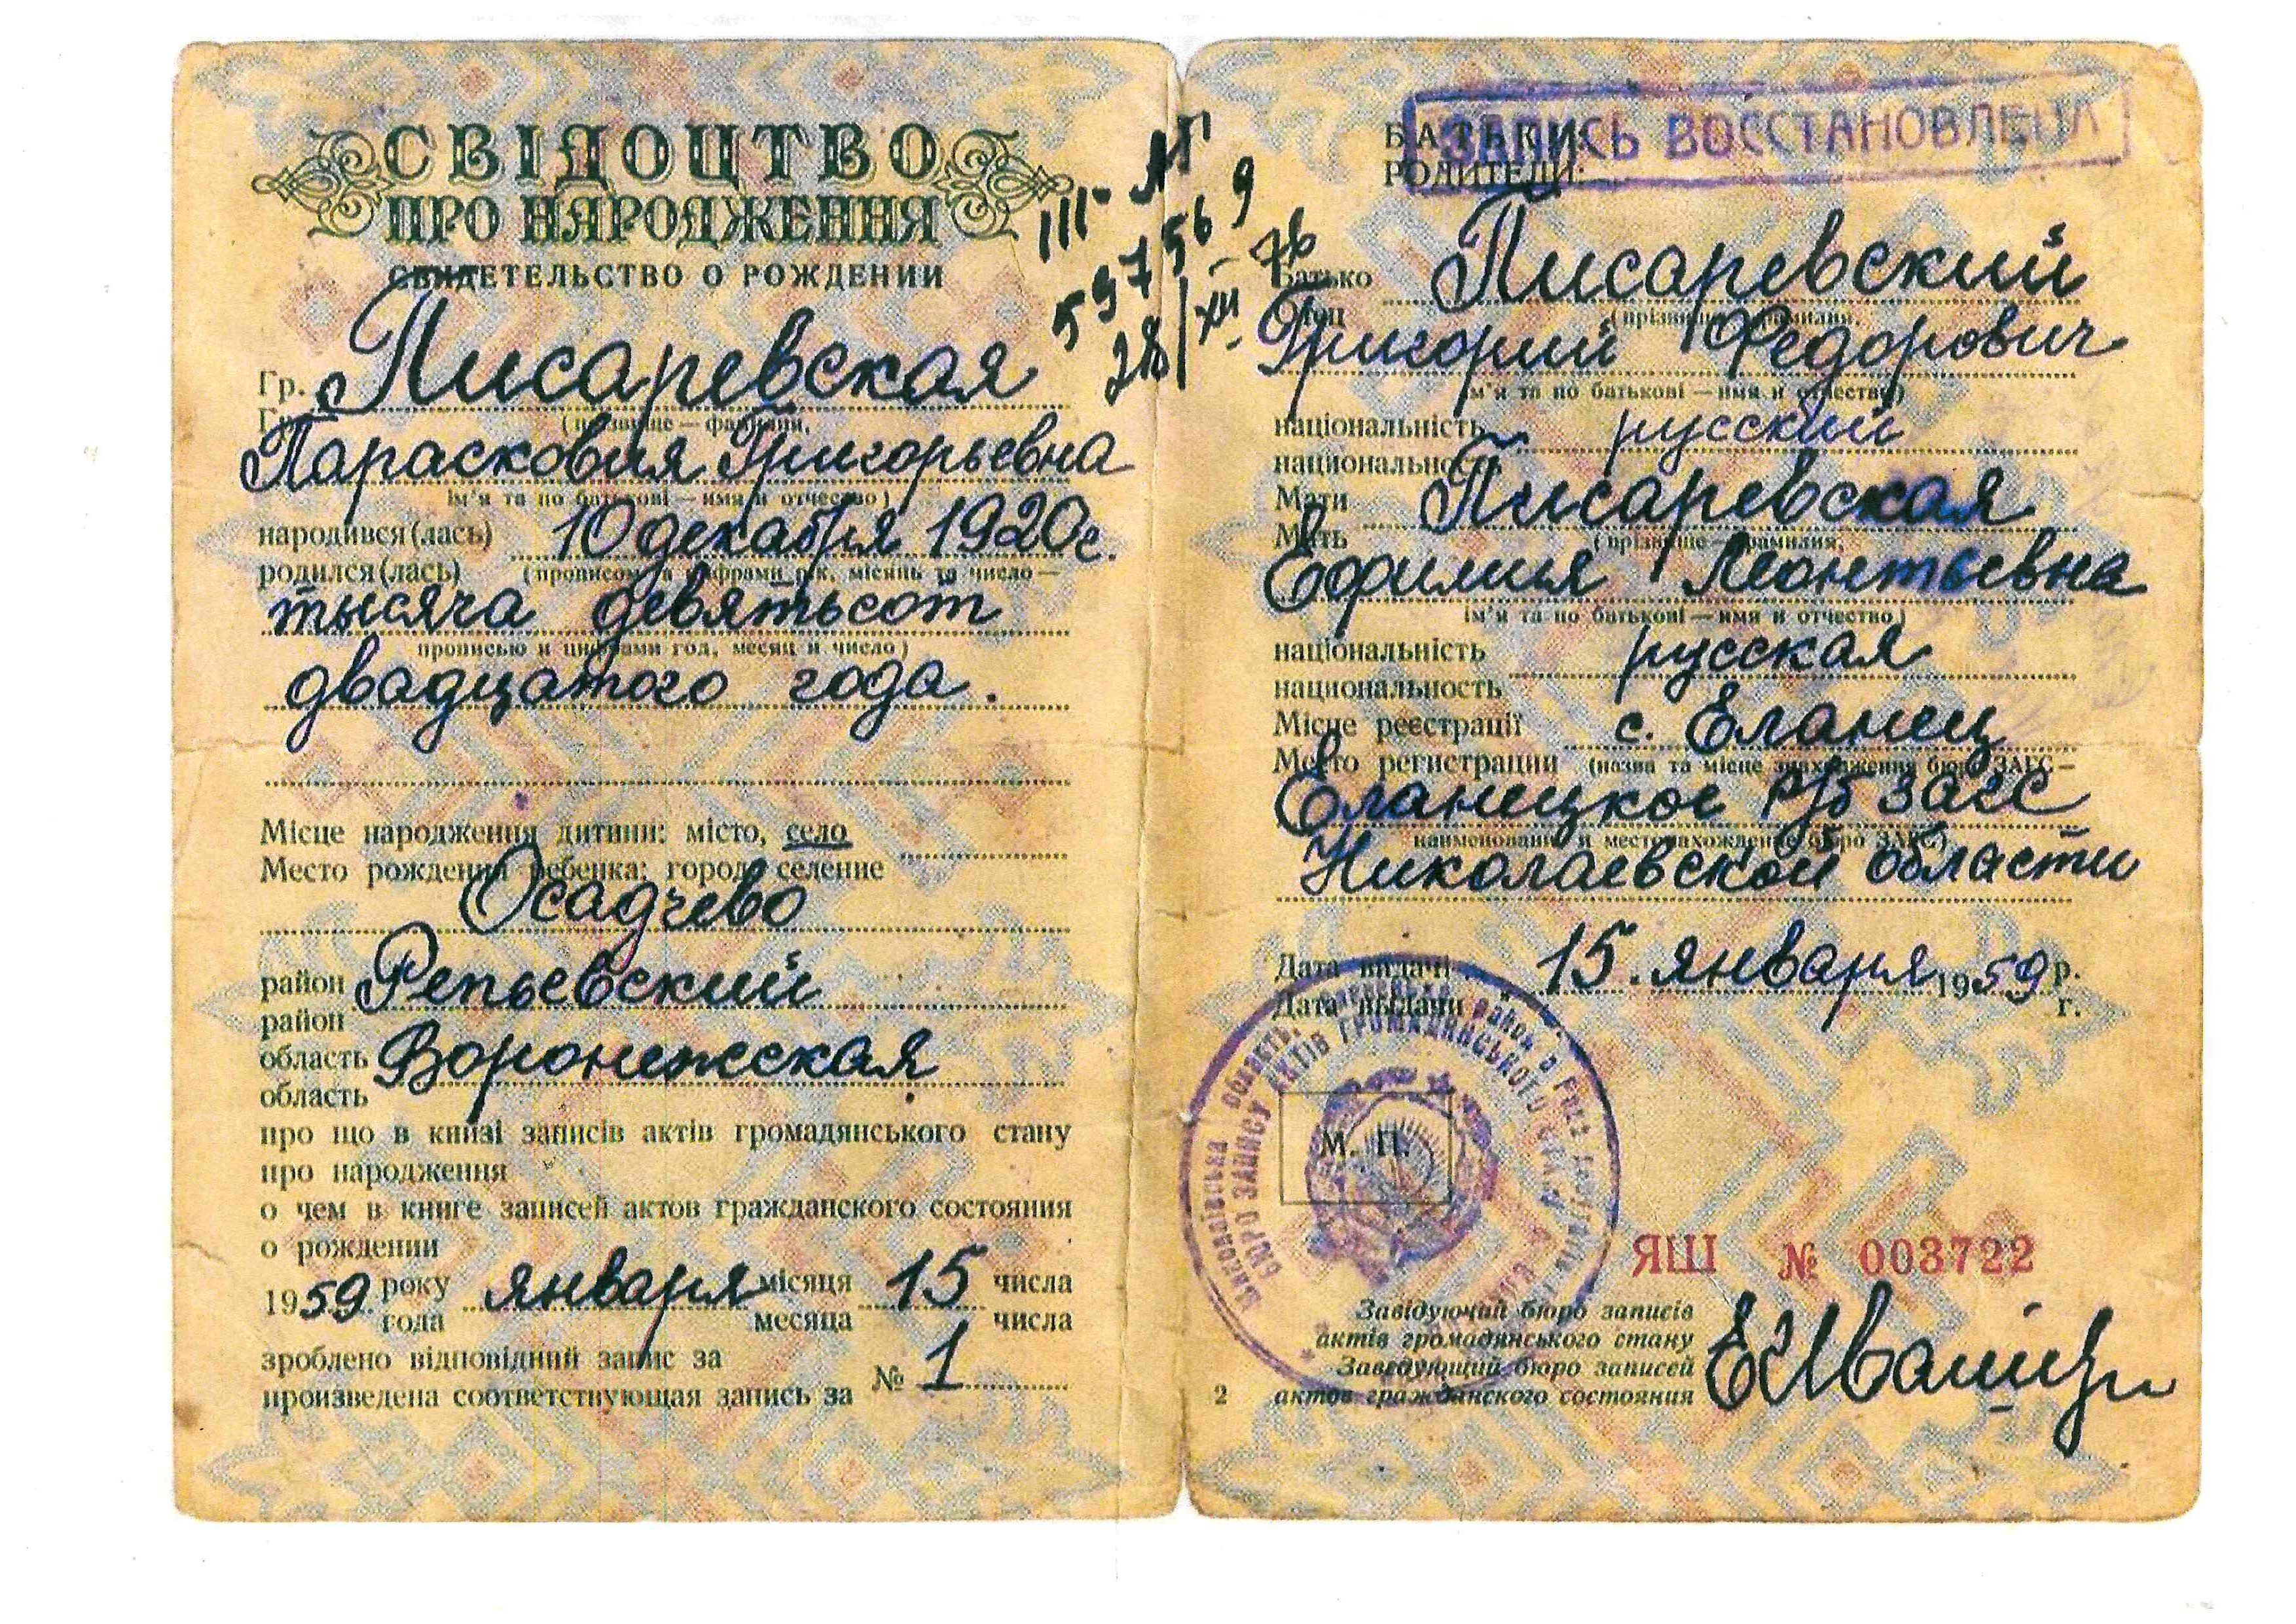 СВІДОЦТВО
ПРО НАРОДЖЕННЯ
СВИДЕТЕЛЬСТВО О РОЖДЕНИИ
Гр. Писаревская
Гр. (прізвище — фамилия,
Парасковия Григорьевна
ім'я та по батькові — имя и отчество)
народився(лась) 10 декабря 1920г.
родился(лась) (прописом и цифрами рік, місяць та число —
тысяча девятьсот
прописью и цифрами год, месяц и число)
двадцатого года.
Місце народження дитини: місто, село
Место рождения ребенка: город, селение
Осадчево
район Репьевский
район
область Воронежская
область
про що в книзі записів актів громадянського стану
про народження
о чем в книге записей актов гражданского состояния
о рождении
1959 року января місяця 15 числа
года месяца числа
зроблено відповідний запис за
№ 1
произведена соответствующая запись за
III-
597569
28/XII-76
ЗАПИСЬ ВОССТАНОВЛЕНА
БАТЬКИ:
РОДИТЕЛИ:
Батько Писаревский
Отец (прізвище — фамилия,
Григорий Федорович
ім'я та по батькові — имя и отчество)
національність русский
национальность
Мати Писаревская
Мать (прізвище — фамилия,
Ефимия Леонтьевна
ім'я та по батькові — имя и отчество)
національність русская
национальность
Місце реєстрації с. Еланец
Место регистрации (назва та місце знаходження бюро ЗАГС —
Еланецкое р/б загс
наименование и местонахождение бюро ЗАГС)
Николаевской области
Дата видачі 15. января 1959 р.
Дата выдачи г.
Миколаївська область,
БЮРО ЗАПИСУ АКТІВ ГРОМАДЯНСЬКОГО
М. П.
ЯШ № 003722
Завідуючий бюро записів
актів громадянського стану
Заведующий бюро записей
актов гражданского состояния
2